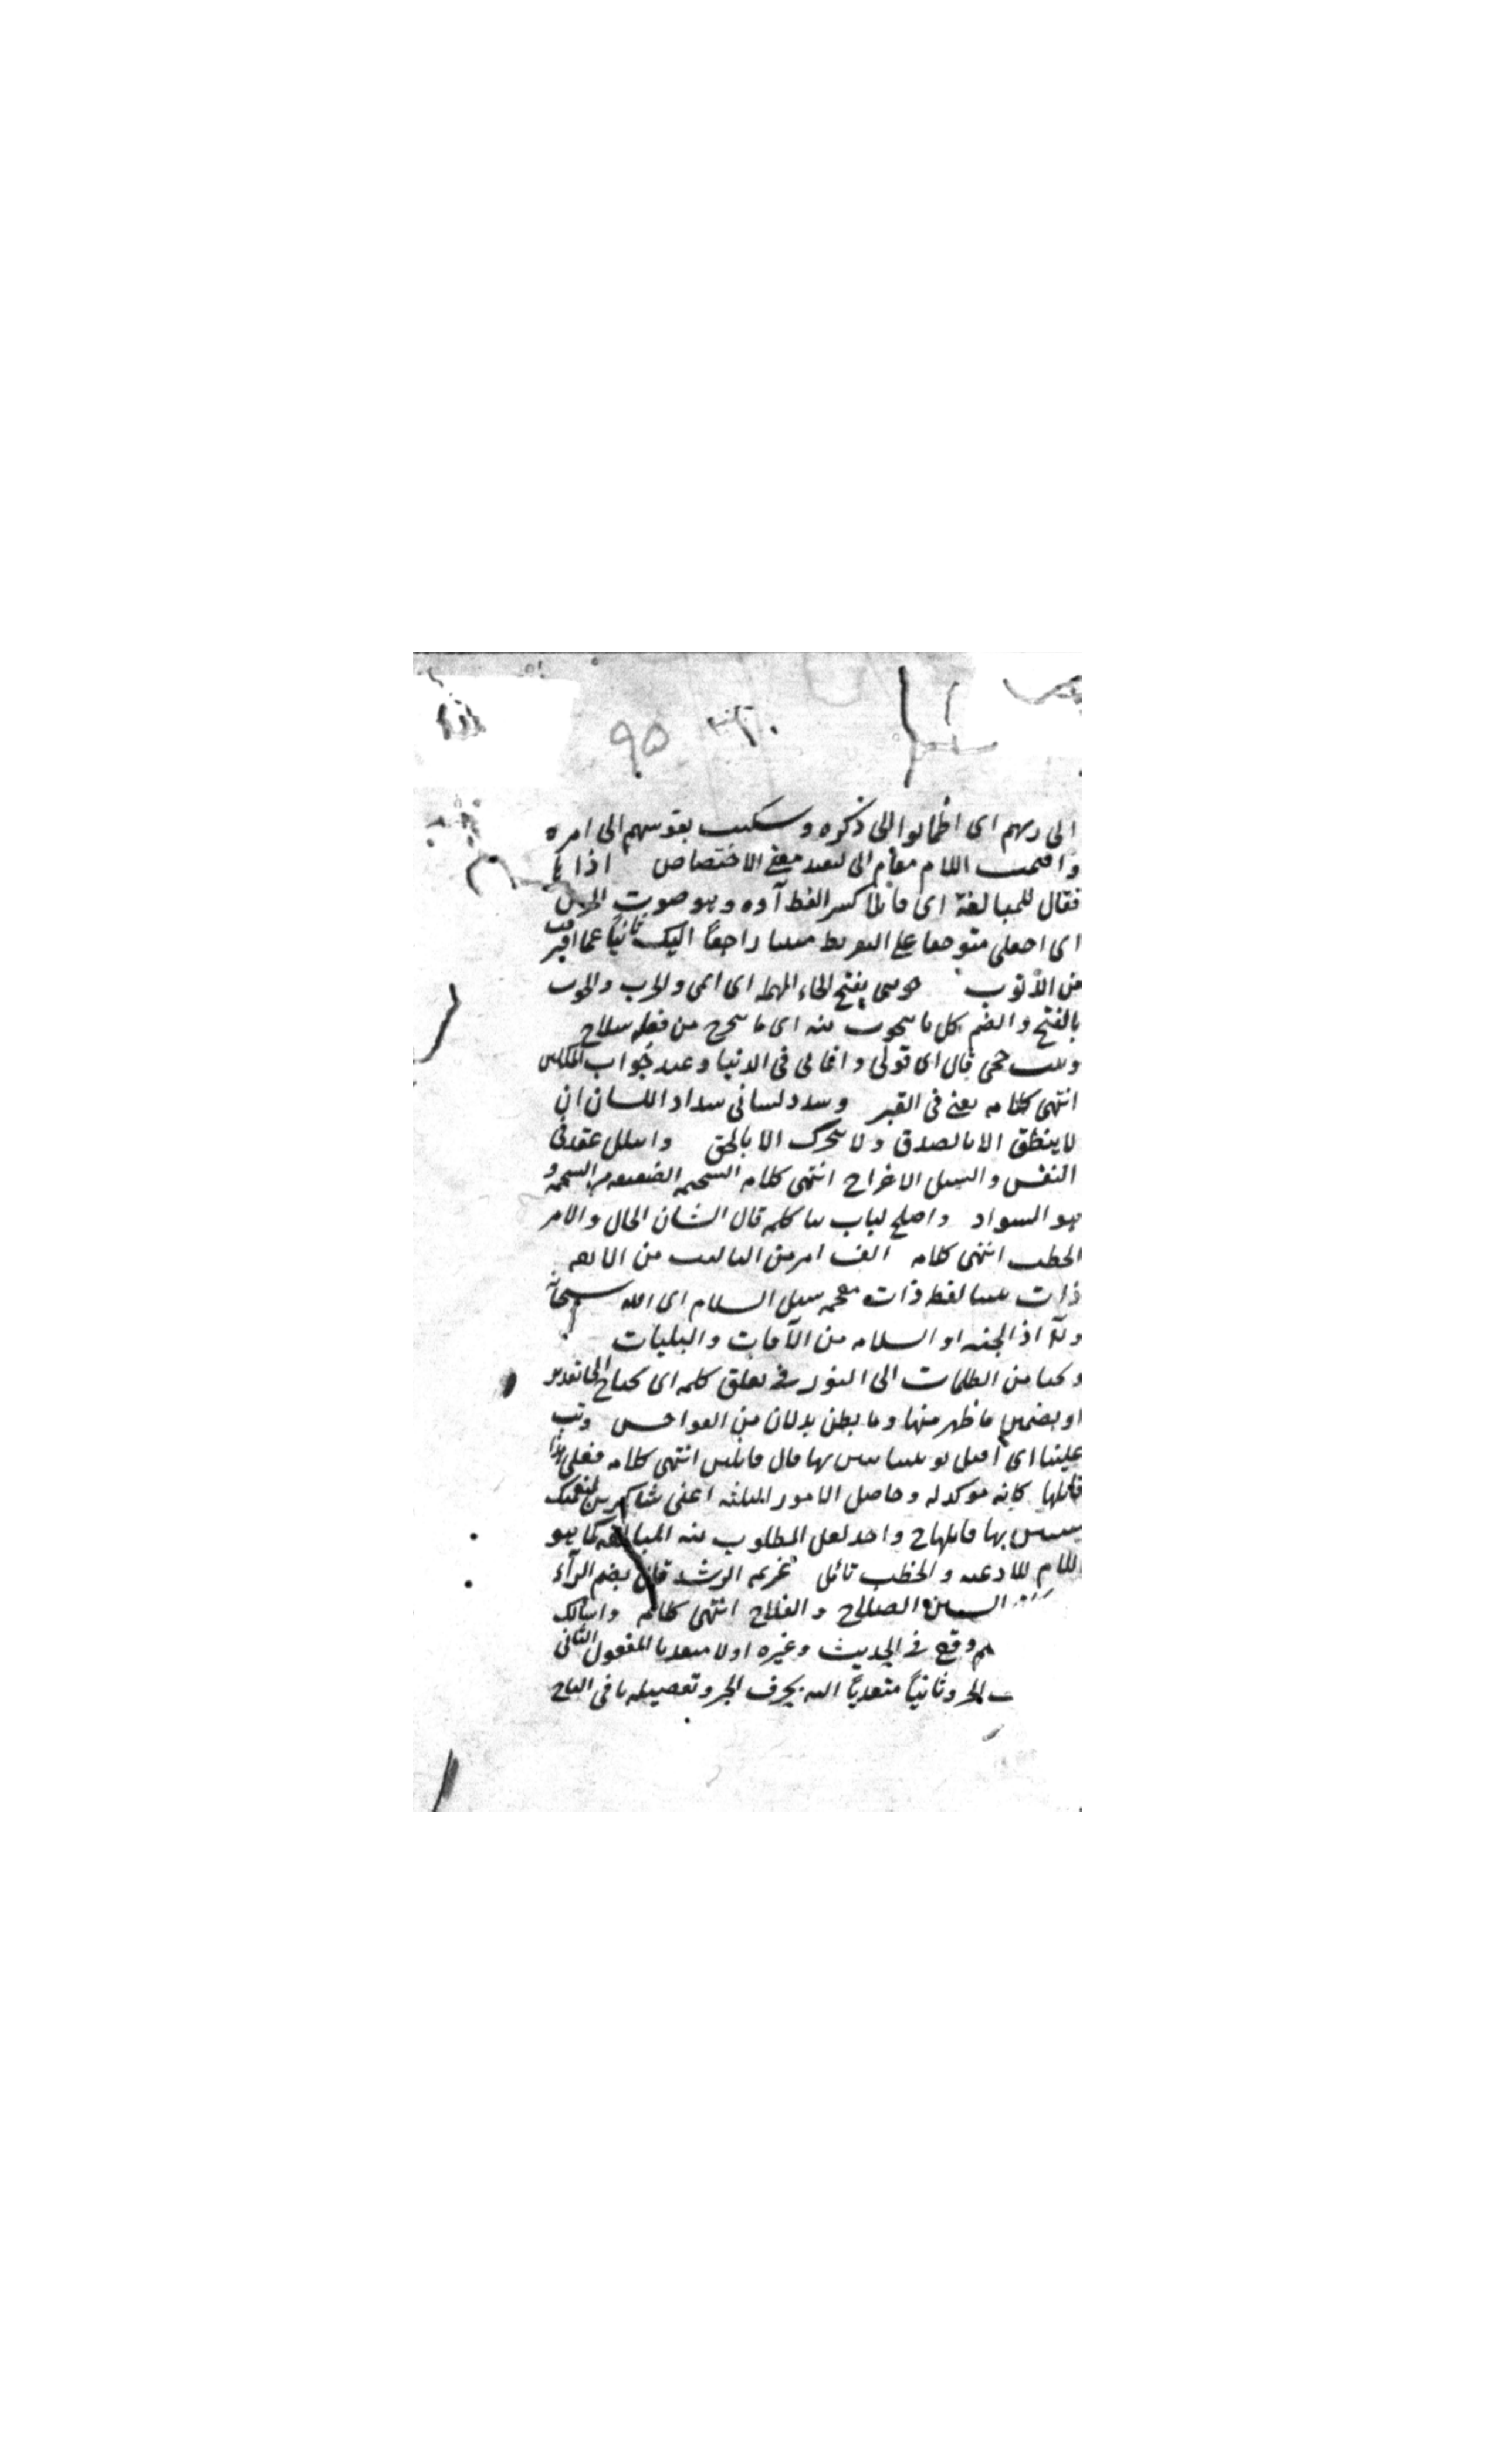 ٩٥
الى ربهم اى اطمانوا الى ذكره وسكنت نفوسهم الى امره
واقيمت اللام مقام الى ليفيد معنى الاختصاص اذا يا
فقال للمبالغة اى قائلا كسر الفظ آوه وهو صوت الحزين
اى اجعلنى متوجعا على التفريط منيبا راجعاً اليك ثانياً عما اقترفت
من الذنوب حوبتى بفتح الحاء المهملة اى اثمى والحوب والحوب
بالفتح والضم كل ما يتحوب منه اى ما يتحرج من فعله
وثبت حجتى قال اى قولى وافعالى فى الدنيا وعند جواب الملكين
انتهى كلامه يعنى فى القبر وسدد لسانى سداد اللسان ان
لا ينطق الا بالصدق ولا يتحرك الا بالحق واسلل
النفس والسل الاخراج انتهى كلامه السخيمة الضغينة من السخمة و
هو السواد واصلح لباب قال الشان الحال والامر
الخطب انتهى كلامه الف امر من التاليف من الالفة
ذات بيننا لفظ ذات مقحمة سبل السلام اى الله سبحانه
اذ الجنة او السلامه من الآفات والبليات
ونجنا من الظلمات الى النور فى تعلق كلمة اى يحتاج الى تقدير
او بتضمين ما ظهر منها وما بطن بدلان من الفواحش وتب
علينا اى اقبل توبتنا بها قال قائلين انتهى كلامه فعلى هذا
قائليها كانه موكد له وحاصل الامور الثلثه اعنى شاكرين لنعمتك
مثنين بها قابليها ح واحد لعل المطلوب منه المبالغه كما هو
اللام للادعيه والخطب تامل عزيمة الرشد قال بضم الرآء
السين الصلاح والفلاح انتهى كلامه واسالك
وقع فى الحديث وغيره اولا متعديا للمفعول الثانى
الجر وثانياً متعدياً اليه بحرف الجر وتفصيله ما فى التاج